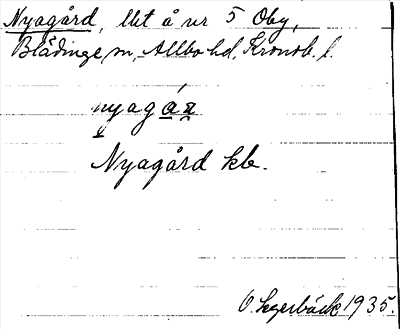 Nyagård, llet å nr 5 Oby,
Blädinge sn, Allbo hd, Kronob. l.
nyagán
Nyagård kb.
O. Lagerbäck 1935.